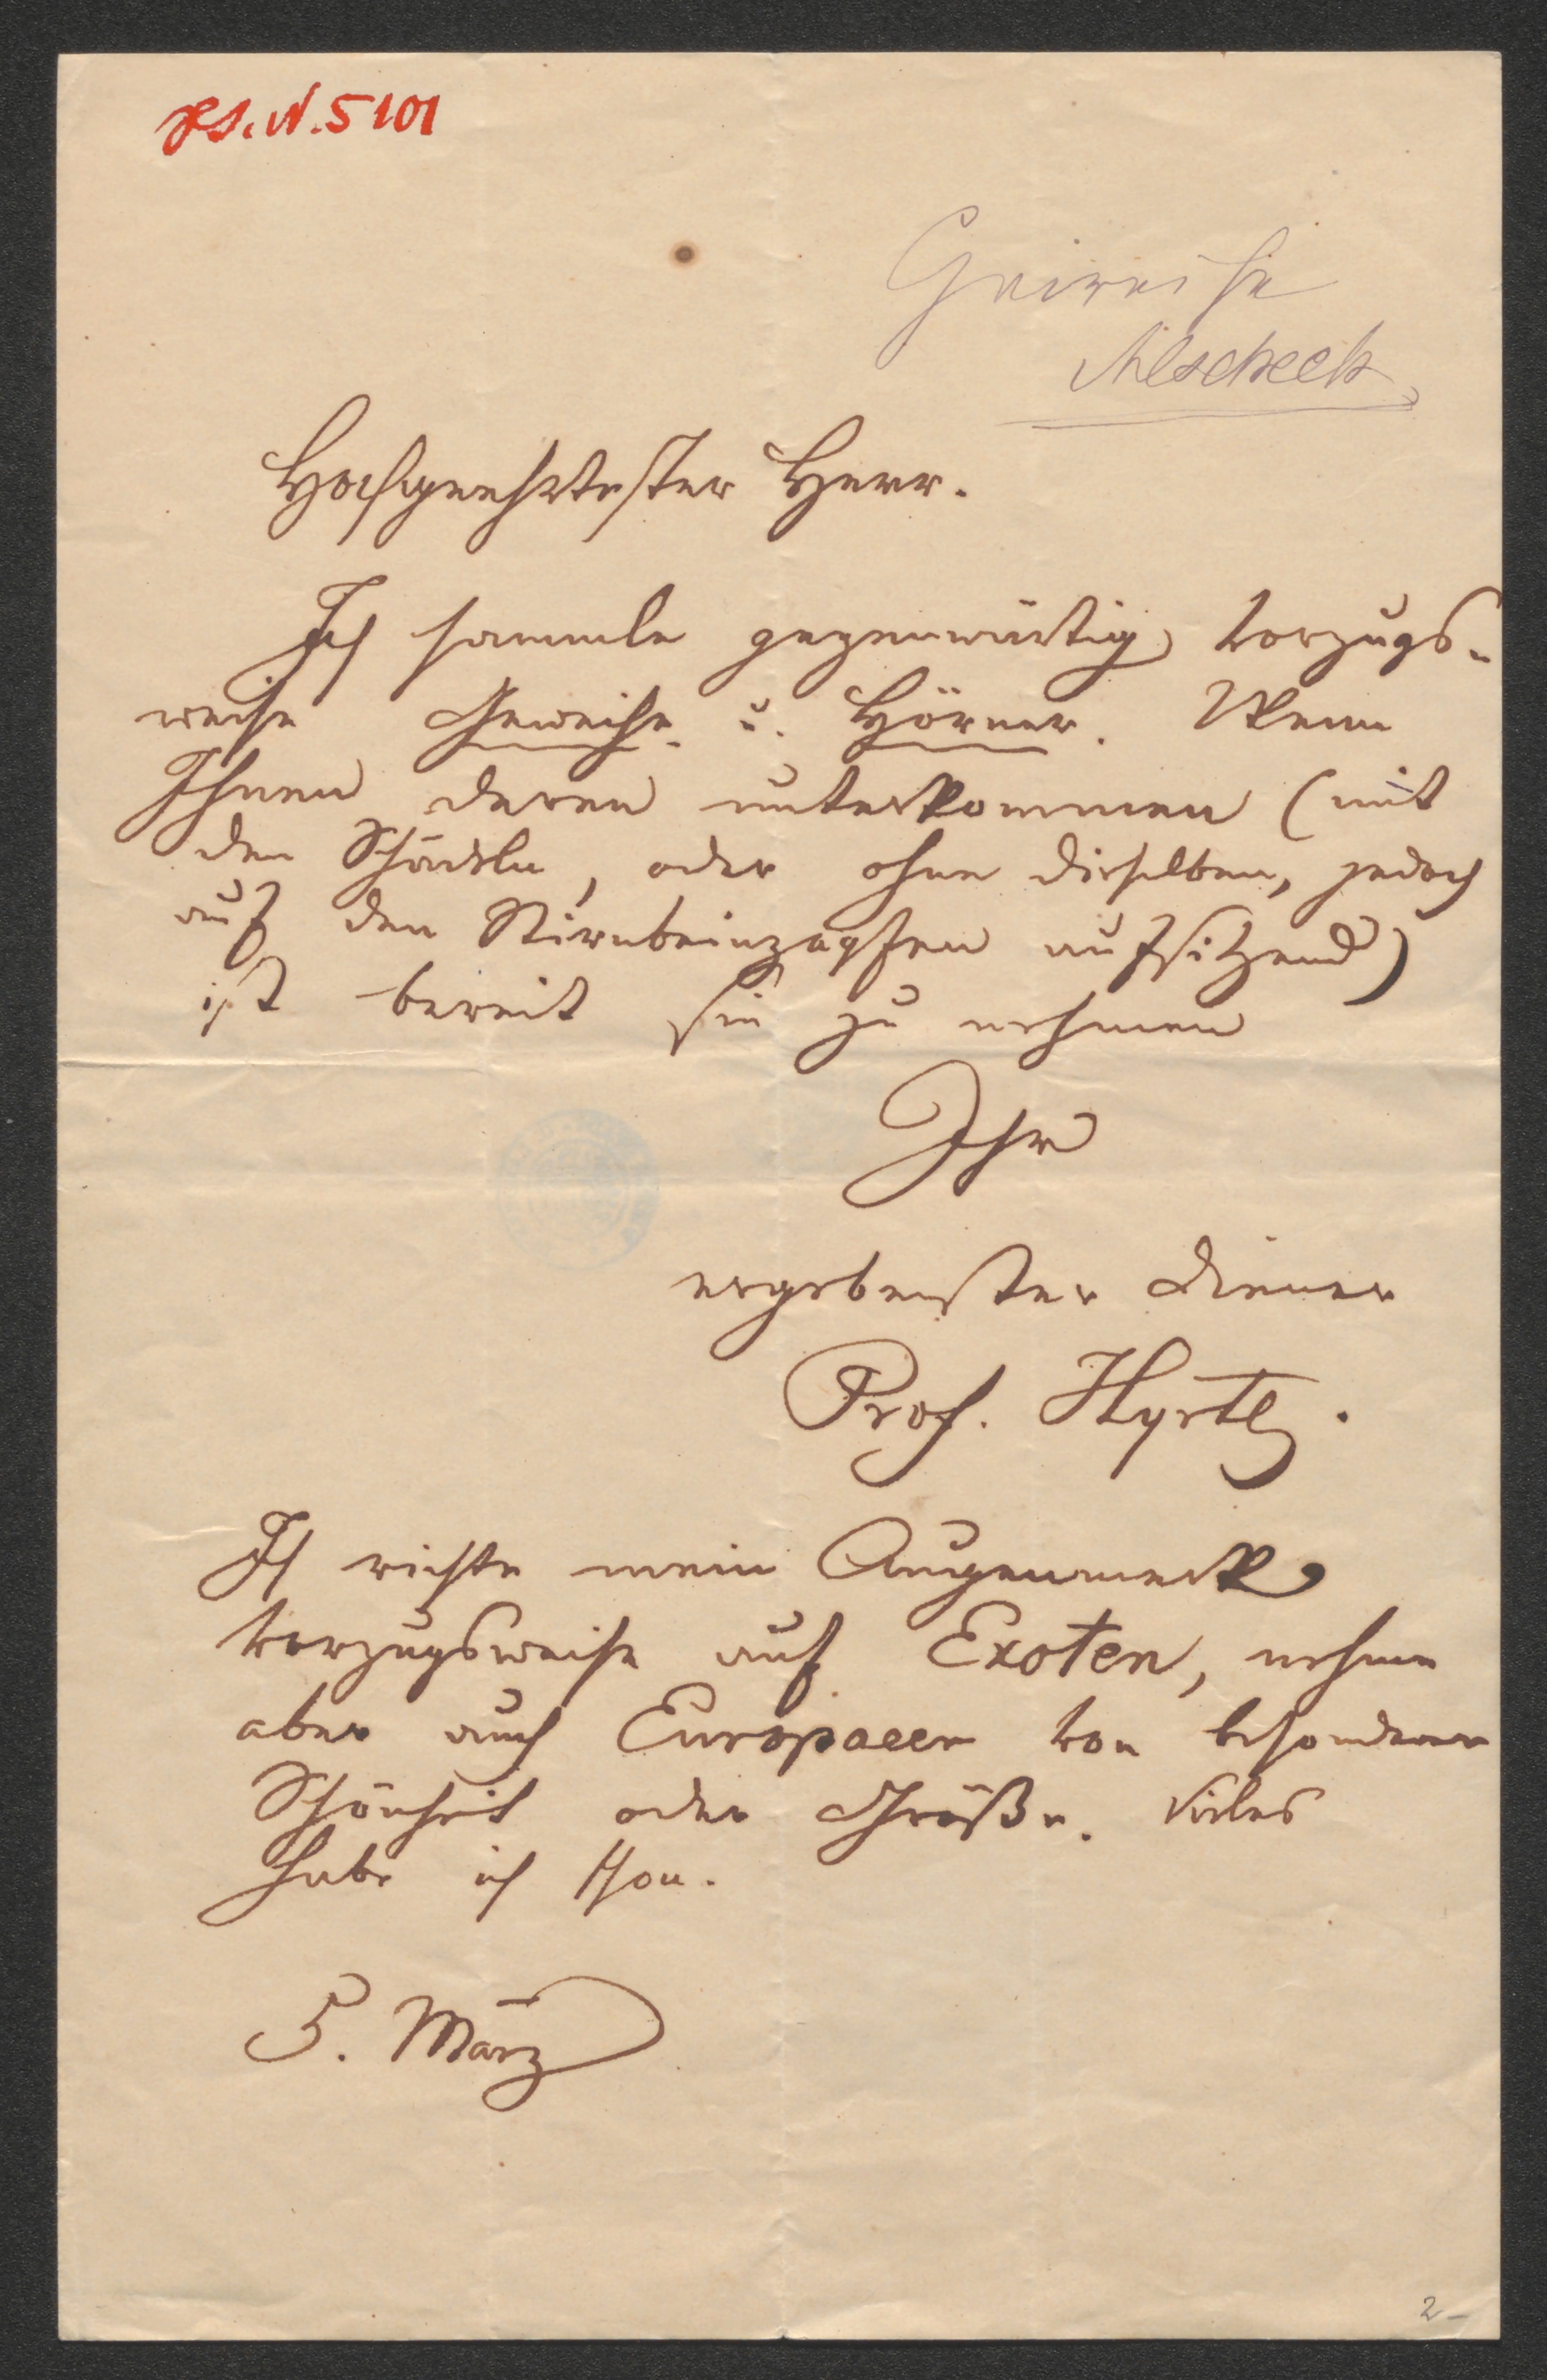 HS. N. 5101
Geweihe
Hochgeehrtester Herr.
Ich sammle gegenwärtig vorzugs-
weise Geweihe u. Hörner. Wenn
Ihnen deren unterkommen (mit
den Schädeln, oder ohne dieselben, jedoch
auf den Stirnbeinzapfen aufsitzend)
ist bereit sie zu nehmen
Ihr
ergebenster Diener
Prof. Hyrtl.
Ich richte mein Augenmerk
vorzugsweise auf Exoten, nehme
aber auch Europaeer von besonderer
Schönheit oder Größe. Vieles
habe ich schon.
5. März
2-